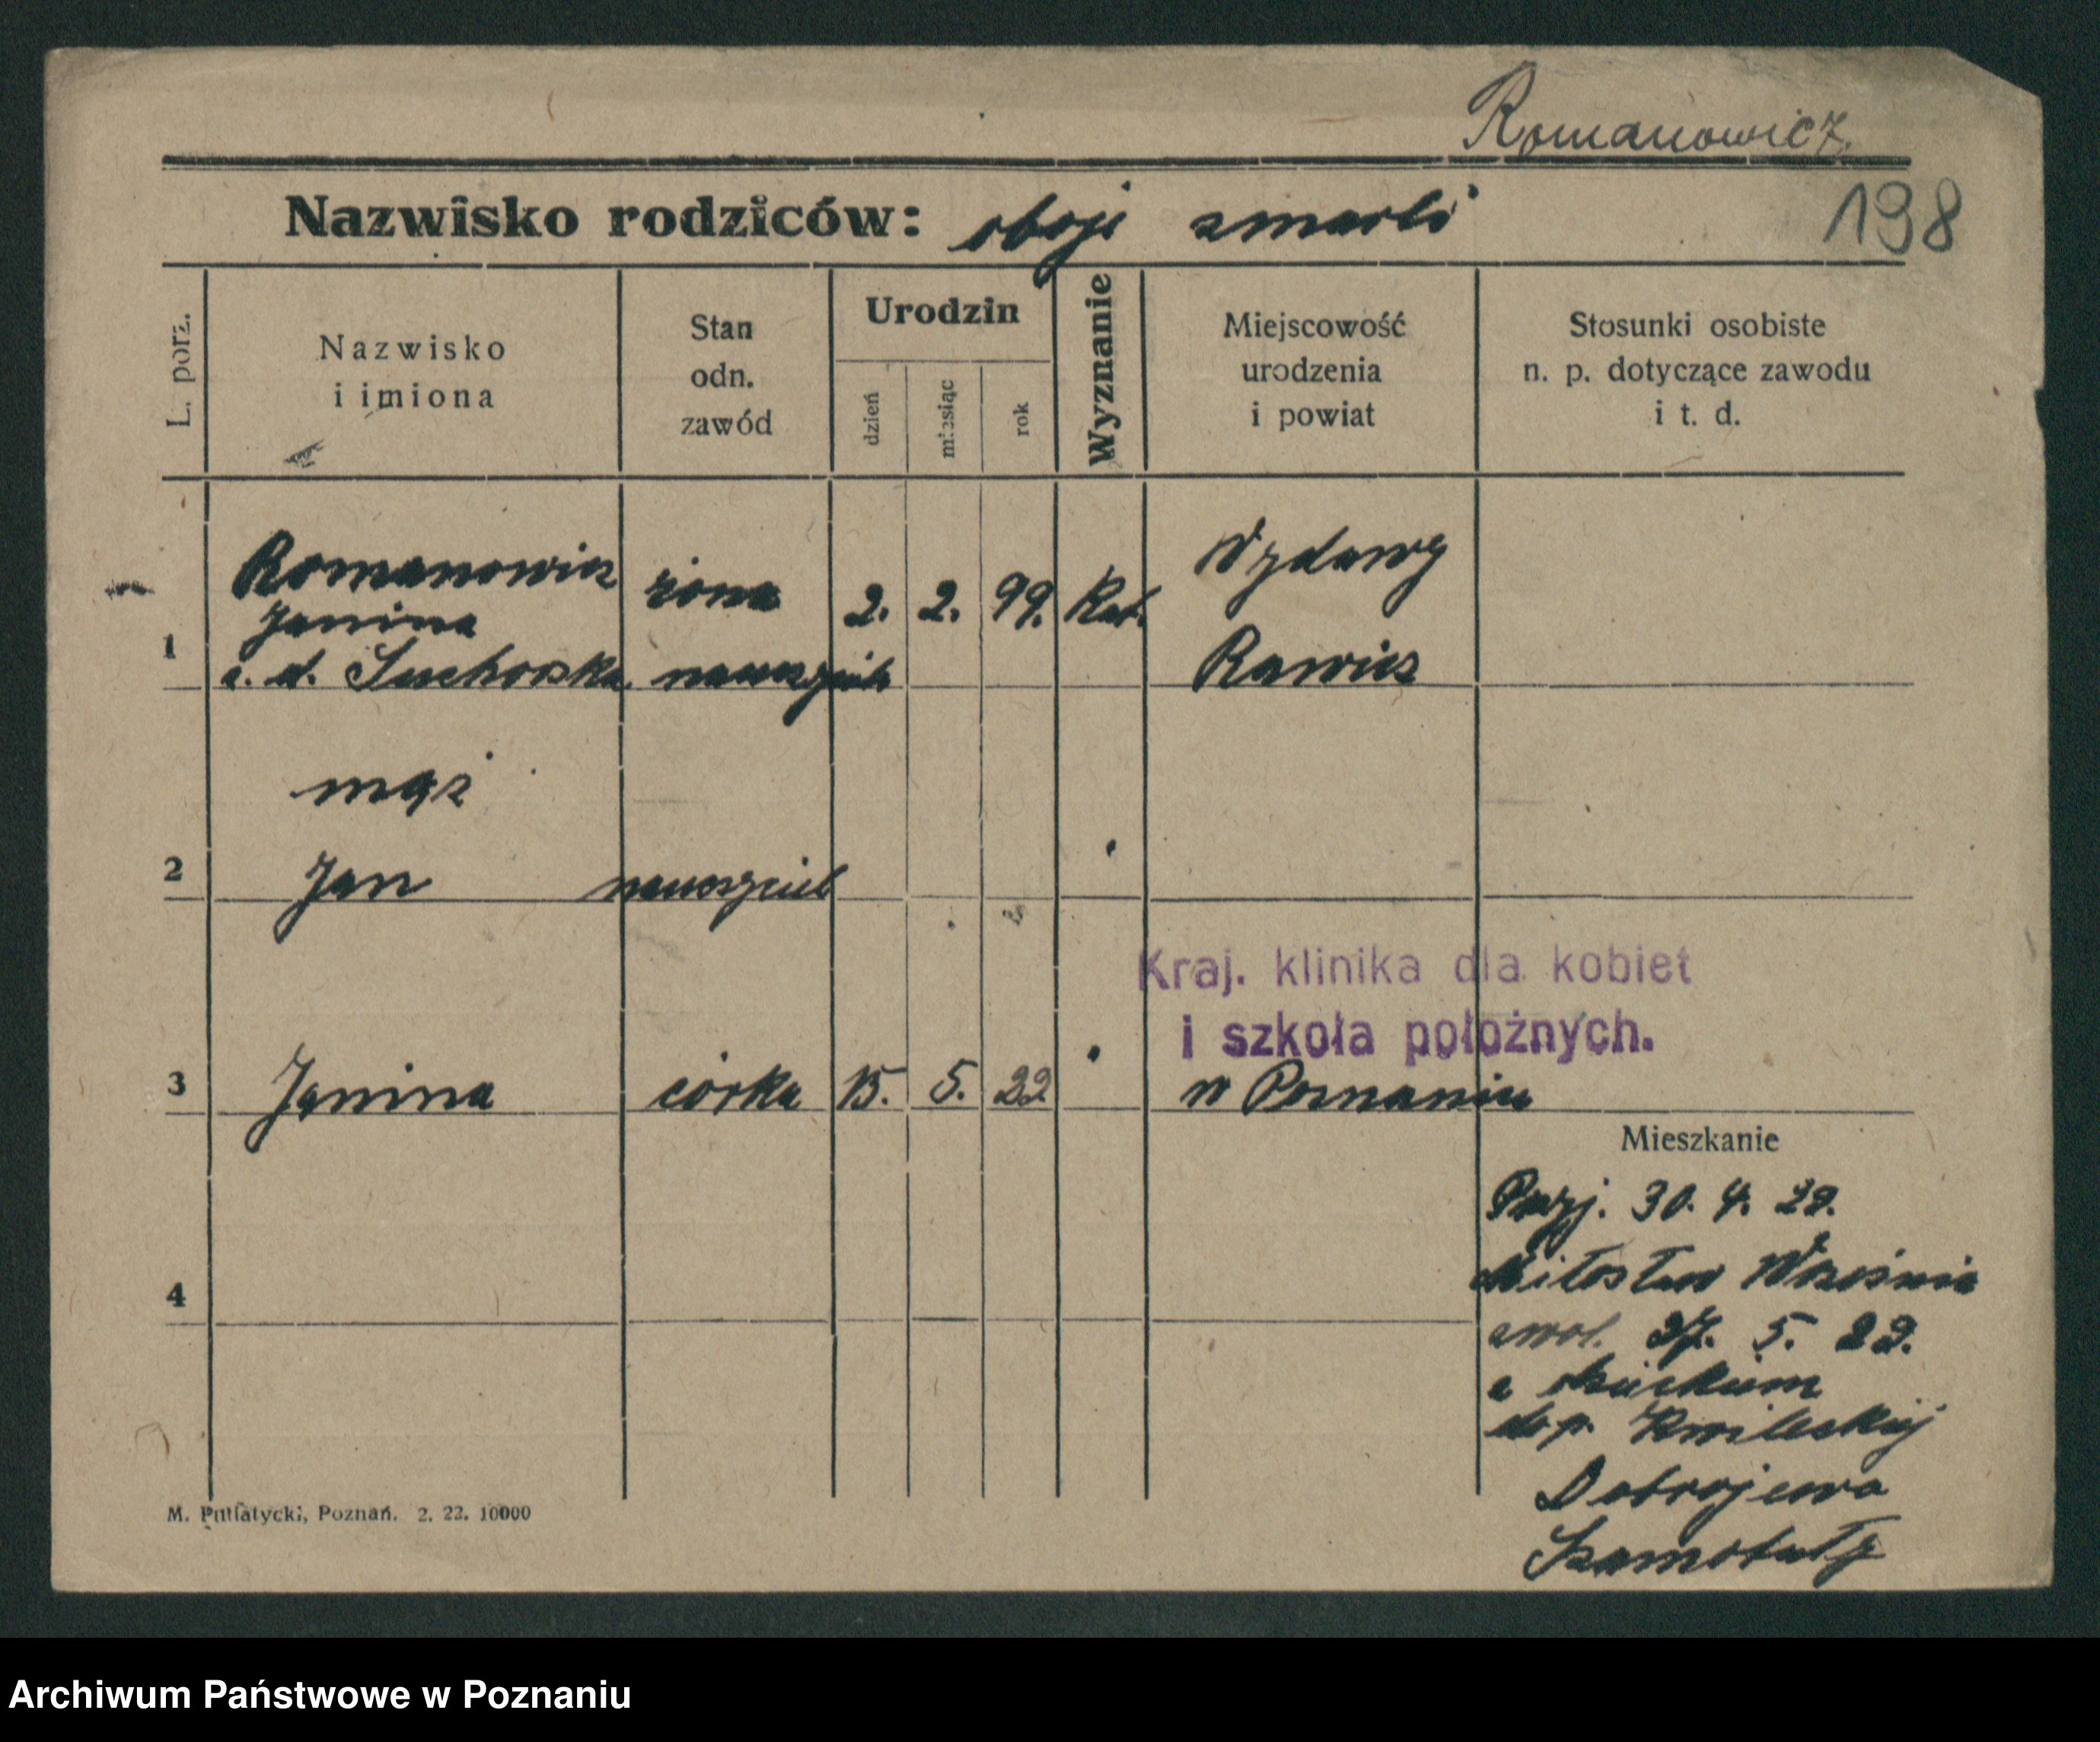 Romanowicz.
198
Nazwisko rodziców: oboje zmarli
L. porz.
Nazwisko
i imiona
Stan
odn.
zawód
Urodzin
dzień
miesiąc
rok
Wyznanie
Miejscowość
urodzenia
i powiat
Stosunki osobiste
n. p. dotyczące zawodu
i t. d.
1
Romanowicz
Janina
z. d. Suchorska
żona
nauczyciela
2. 2. 99. Kat.
Wydawy
Rawicz
mąż
2
Jan nauczyciel
Kraj. klinika dla kobiet
i szkoła położnych.
3 Janina córka 15. 5. 22 w Poznaniu
Mieszkanie
Przyj. 30. 4. 22.
Miłosław Września
4
zwol. 27. 5. 22.
z dzieckiem
do p. Kwileckiej
Dobrojewo
Szamotuły
M. Putiatycki, Poznań. 2. 22. 10000
Archiwum Państwowe w Poznaniu